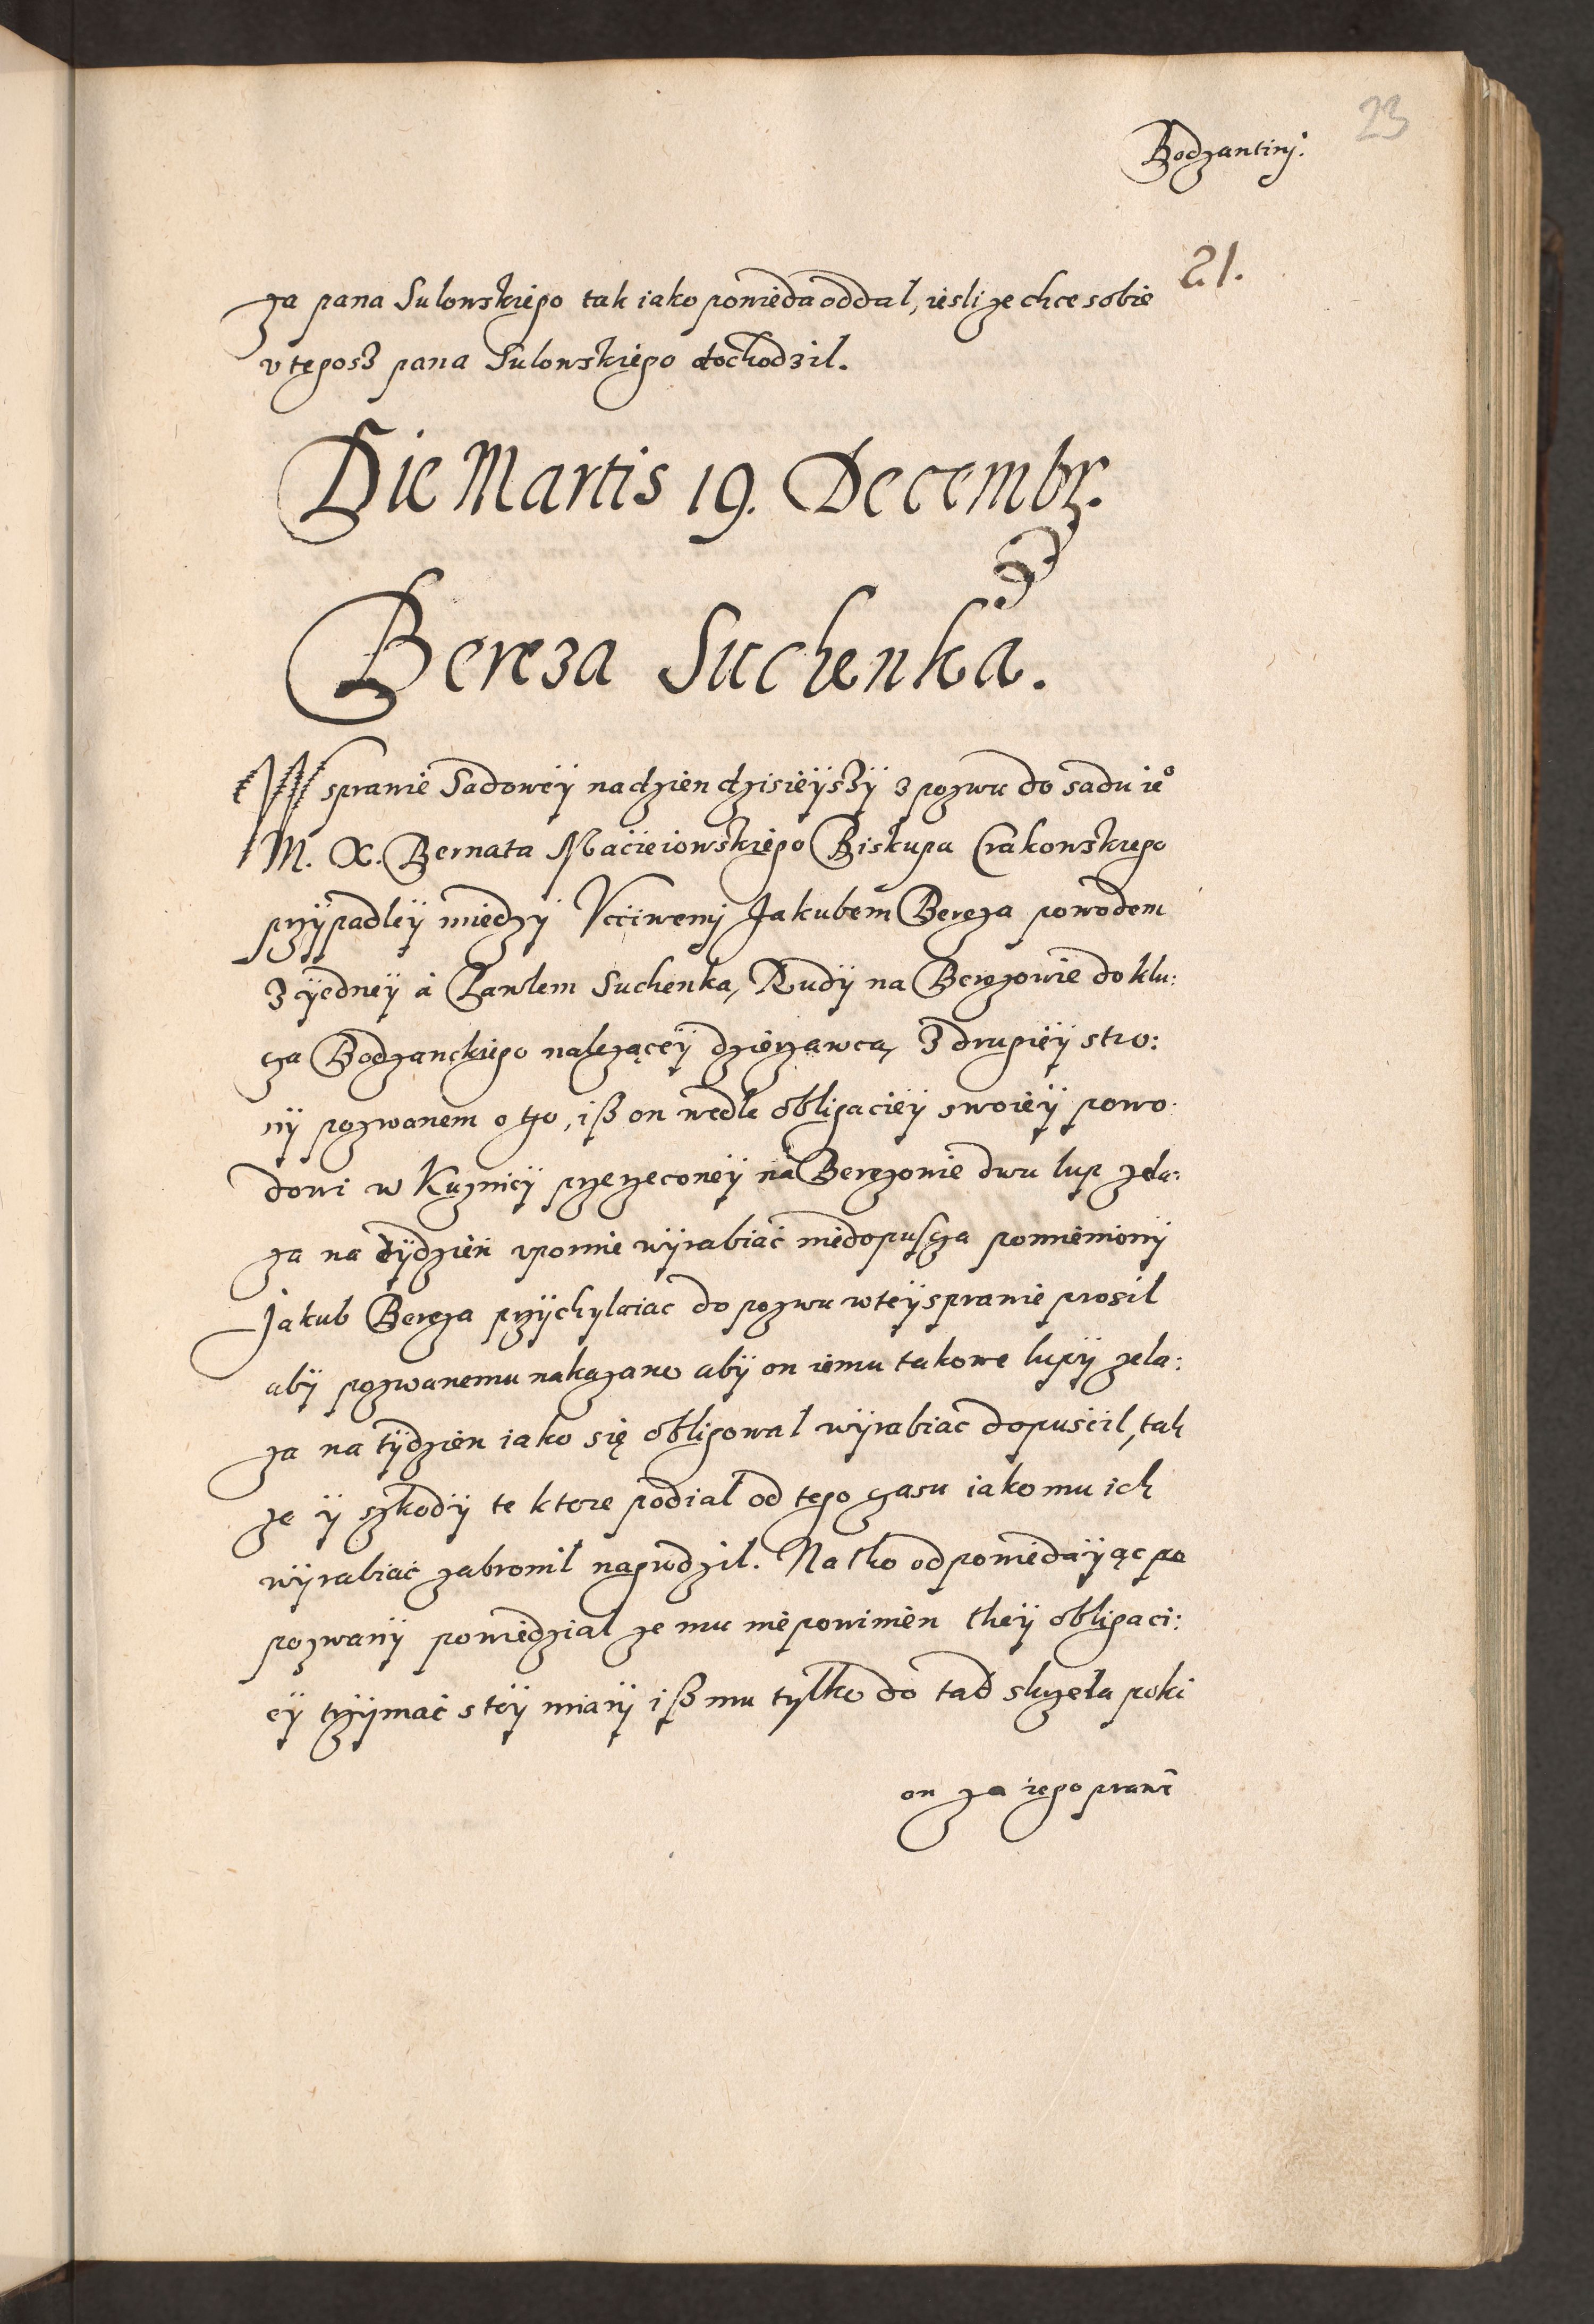 23
Bodzantinj.
21.
za pana Sulowskiego tak iako powieda oddal, iesli ze chce sobie
v tegosz pana Sulowskiego dochodzil.
Die Martis 19. Decembr.
Bereza Suchenka.
W sprawie Sadowey na dzien dzisieyszy z pozwu do sadu ieº
M. X. Bernata Macieiowskiego Biskupa Crakowskiego
przypadley miedzy Vcciwemj Jakubem Bereza powodem
z iedney à Pawlem Suchenka, Rudy na Berezowie do klu:
cza Bodzanckiego nalezącey dzierzawca, z drugiey stro:
ny pozwanem o tho, iß on wedle obligaciey swoiey powo:
dowi w Kuznicy przerzeconey na Berezowie dwu lup zela:
za na tydzień vpornie wyrabiać niedopuscza pomieniony
Jakub Bereza przychylaiac do pozwu w tey sprawie prosil
aby pozwanemu nakazano aby on iemu takowe lupy zela:
za na tydzien iako się obligowal wyrabiac dopuścil, tak
ze y szkody te ktore podial od tego czasu iako mu ich
wyrabiać zabronil nagrodzil. Na tho odpowiedaiąc po
pozwany powiedzial ze mu niepowinien they obligaci:
ey trzymać s tey miary iß mu tylko do tad sluzela poki
on za iego prawē